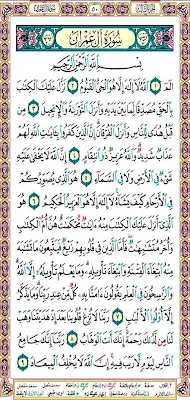 ٥٠
سُورَةُ آلِ عِمْرَانَ
بِسْمِ ٱللَّهِ ٱلرَّحْمَٰنِ ٱلرَّحِيمِ
الٓمٓ ١ ٱللَّهُ لَآ إِلَٰهَ إِلَّا هُوَ ٱلْحَىُّ ٱلْقَيُّومُ ٢ نَزَّلَ عَلَيْكَ ٱلْكِتَٰبَ
بِٱلْحَقِّ مُصَدِّقًا لِّمَا بَيْنَ يَدَيْهِ وَأَنزَلَ ٱلتَّوْرَىٰةَ وَٱلْإِنجِيلَ ٣ مِن
قَبْلُ هُدًى لِّلنَّاسِ وَأَنزَلَ ٱلْفُرْقَانَ إِنَّ ٱلَّذِينَ كَفَرُوا۟ بِـَٔايَٰتِ ٱللَّهِ لَهُمْ
عَذَابٌ شَدِيدٌ وَٱللَّهُ عَزِيزٌ ذُو ٱنتِقَامٍ ٤ إِنَّ ٱللَّهَ لَا يَخْفَىٰ عَلَيْهِ
شَىْءٌ فِى ٱلْأَرْضِ وَلَا فِى ٱلسَّمَآءِ ٥ هُوَ ٱلَّذِى يُصَوِّرُكُمْ
فِى ٱلْأَرْحَامِ كَيْفَ يَشَآءُ لَآ إِلَٰهَ إِلَّا هُوَ ٱلْعَزِيزُ ٱلْحَكِيمُ ٦ هُوَ
ٱلَّذِىٓ أَنزَلَ عَلَيْكَ ٱلْكِتَٰبَ مِنْهُ ءَايَٰتٌ مُّحْكَمَٰتٌ هُنَّ أُمُّ ٱلْكِتَٰبِ
وَأُخَرُ مُتَشَٰبِهَٰتٌ فَأَمَّا ٱلَّذِينَ فِى قُلُوبِهِمْ زَيْغٌ فَيَتَّبِعُونَ مَا تَشَٰبَهَ
مِنْهُ ٱبْتِغَآءَ ٱلْفِتْنَةِ وَٱبْتِغَآءَ تَأْوِيلِهِۦ وَمَا يَعْلَمُ تَأْوِيلَهُۥٓ إِلَّا ٱللَّهُ
وَٱلرَّٰسِخُونَ فِى ٱلْعِلْمِ يَقُولُونَ ءَامَنَّا بِهِۦ كُلٌّ مِّنْ عِندِ رَبِّنَا وَمَا يَذَّكَّرُ
إِلَّآ أُو۟لُوا۟ ٱلْأَلْبَٰبِ ٧ رَبَّنَا لَا تُزِغْ قُلُوبَنَا بَعْدَ إِذْ هَدَيْتَنَا وَهَبْ
لَنَا مِن لَّدُنكَ رَحْمَةً إِنَّكَ أَنتَ ٱلْوَهَّابُ ٨ رَبَّنَآ إِنَّكَ جَامِعُ
ٱلنَّاسِ لِيَوْمٍ لَّا رَيْبَ فِيهِ إِنَّ ٱللَّهَ لَا يُخْلِفُ ٱلْمِيعَادَ ٩